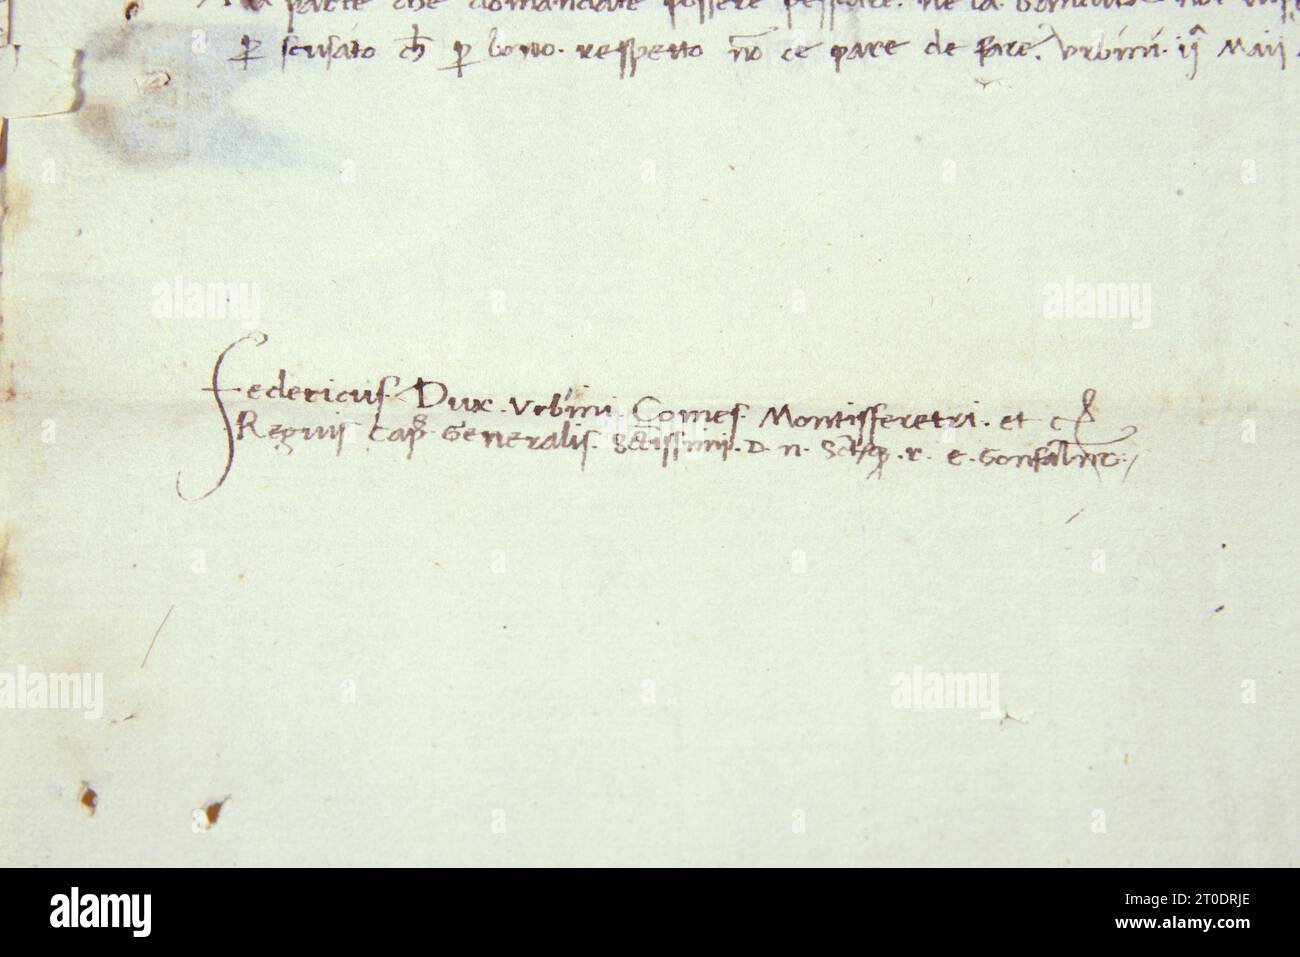 parte che domandate possere pescare. ne la
ꝑ scusato ch̄ ꝑ bono. respetto nō ce pare de fare. Vrbini. ij Maij
Federicus. Dux. Vrbini. Comes. Montisferetri. et c̄
Regius Capꝰ. Generalis. Sctissimi. D. n. Sctqꝫ. r. e. Gonfalnro.
alamy
alamy
alamy
alamy
alamy
Image ID: 2T0DRJE
www.alamy.com